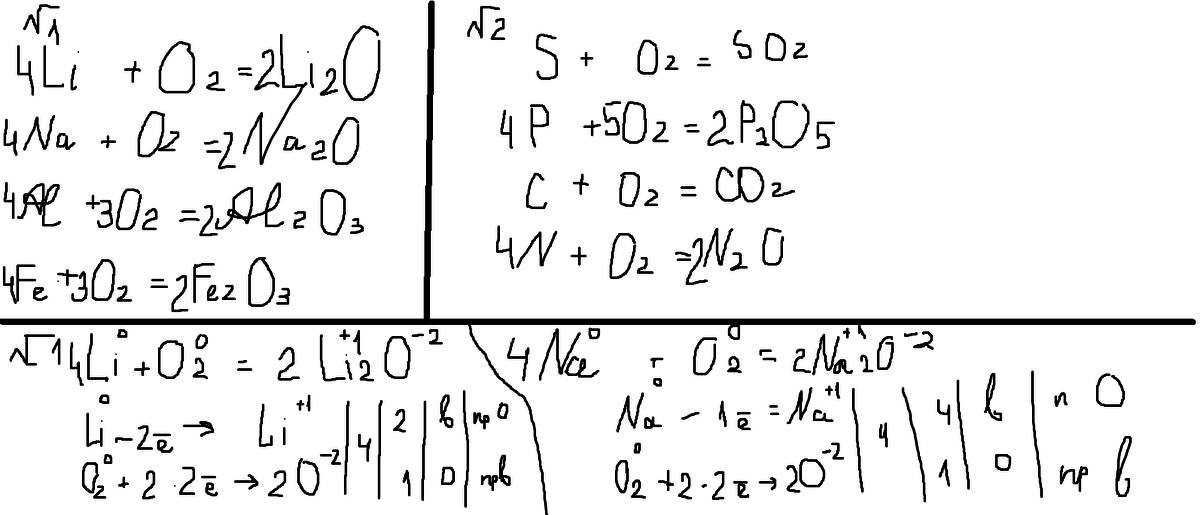 √1
4Li + O2 = 2Li2O
4Na + O2 = 2Na2O
4Al + 3O2 = 2Al2O3
4Fe + 3O2 = 2Fe2O3
√2
S + O2 = SO2
4P + 5O2 = 2P2O5
C + O2 = CO2
4N + O2 = 2N2O
√1 4Li⁰ + O2⁰ = 2Li2⁺¹O⁻²
Li⁰ - 2e̅ → Li⁺¹ | 4 | 2 | в | пр о
O2⁰ + 2·2e̅ → 2O⁻² | 1 | о | пр в
4Na⁰ - O2⁰ = 2Na2⁺¹O⁻²
Na⁰ - 1e̅ = Na⁺¹ | 4 | 4 | в | п О
O2⁰ + 2·2e̅ → 2O⁻² | 1 | о | пр в